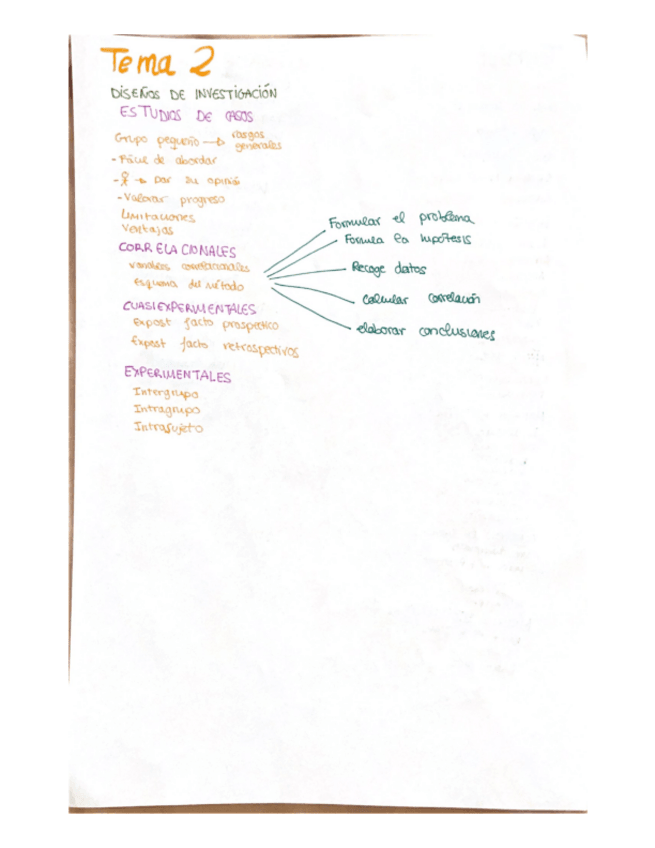 Tema 2
DISEÑOS DE INVESTIGACIÓN
ESTUDIOS DE CASOS
Grupo pequeño → rasgos generales
- Fácil de abordar
- → dar su opinió
- Valorar progreso
Limitaciones
Ventajas
CORRELACIONALES
variables
esquema del método
Formular el problema
Formula la hipótesis
Recoge datos
calcular correlación
elaborar conclusiones
CUASIEXPERIMENTALES
Expost facto prospectico
Expost facto retrospectivos
EXPERIMENTALES
Intergrupo
Intragrupo
Intrasujeto